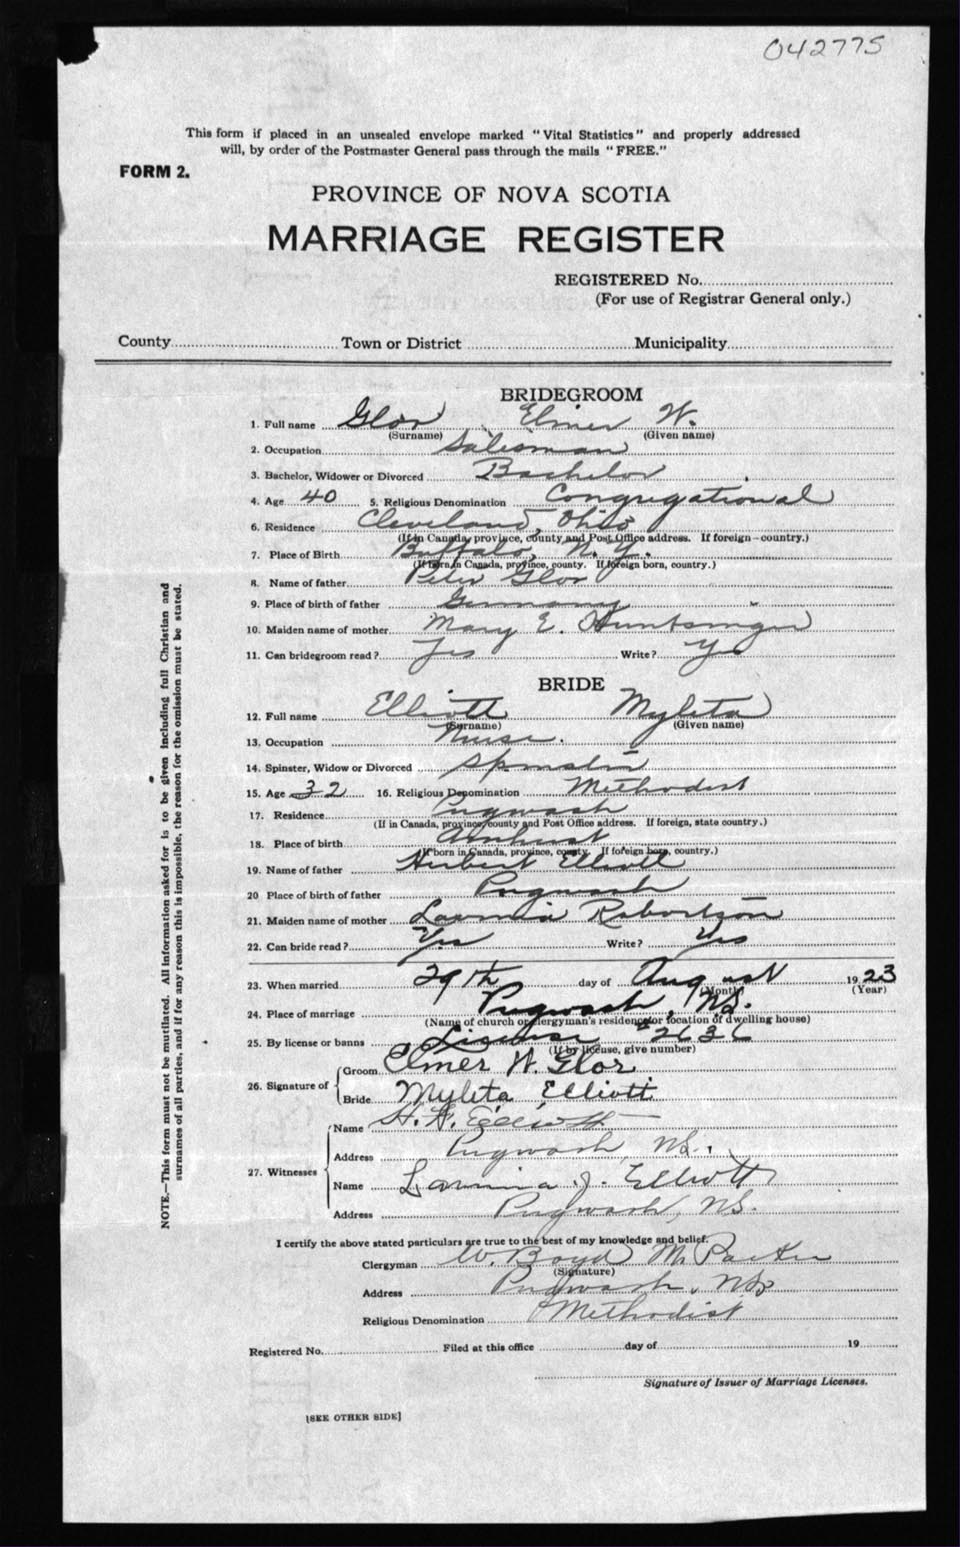 042775
This form if placed in an unsealed envelope marked "Vital Statistics" and properly addressed
will, by order of the Postmaster General pass through the mails "FREE."
FORM 2.
PROVINCE OF NOVA SCOTIA
MARRIAGE REGISTER
REGISTERED No.
(For use of Registrar General only.)
County Town or District Municipality
BRIDEGROOM
1. Full name Glor Elmer W.
(Surname) (Given name)
2. Occupation Salesman
3. Bachelor, Widower or Divorced Bachelor
4. Age 40 5. Religious Denomination Congregational
6. Residence Cleveland, Ohio
(If in Canada, province, county and Post Office address. If foreign—country.)
7. Place of Birth Buffalo, N.Y.
(If born in Canada, province, county. If foreign born, country.)
8. Name of father Peter Glor
9. Place of birth of father Germany
10. Maiden name of mother Mary E. Huntsinger
11. Can bridegroom read? Yes Write? Yes
BRIDE
12. Full name Elliott Myleta
(Surname) (Given name)
13. Occupation Nurse.
14. Spinster, Widow or Divorced Spinster
15. Age 32 16. Religious Denomination Methodist
17. Residence Pugwash
(If in Canada, province, county and Post Office address. If foreign, state country.)
18. Place of birth Amherst
(If born in Canada, province, county. If foreign born, country.)
19. Name of father Herbert Elliott
20. Place of birth of father Pugwash
21. Maiden name of mother Lavinia Robertson
22. Can bride read? Yes Write? Yes
23. When married 29th day of August 1923
(Month) (Year)
24. Place of marriage Pugwash, N.S.
(Name of church or clergyman's residence or location of dwelling house)
25. By license or banns License
(If by license, give number)
26. Signature of Groom Elmer W. Glor
Bride Myleta Elliott
27. Witnesses Name Elliott
Address Pugwash, N.S.
Name Lavinia J. Elliott
Address Pugwash, N.S.
I certify the above stated particulars are true to the best of my knowledge and belief.
Clergyman W. Boyd
(Signature)
Address Pugwash, N.S.
Religious Denomination Methodist
Registered No. Filed at this office day of 19
Signature of Issuer of Marriage Licenses.
[SEE OTHER SIDE]
NOTE.—This form must not be mutilated. All information asked for is to be given including full Christian and
surnames of all parties, and if for any reason this is impossible, the reason for the omission must be stated.